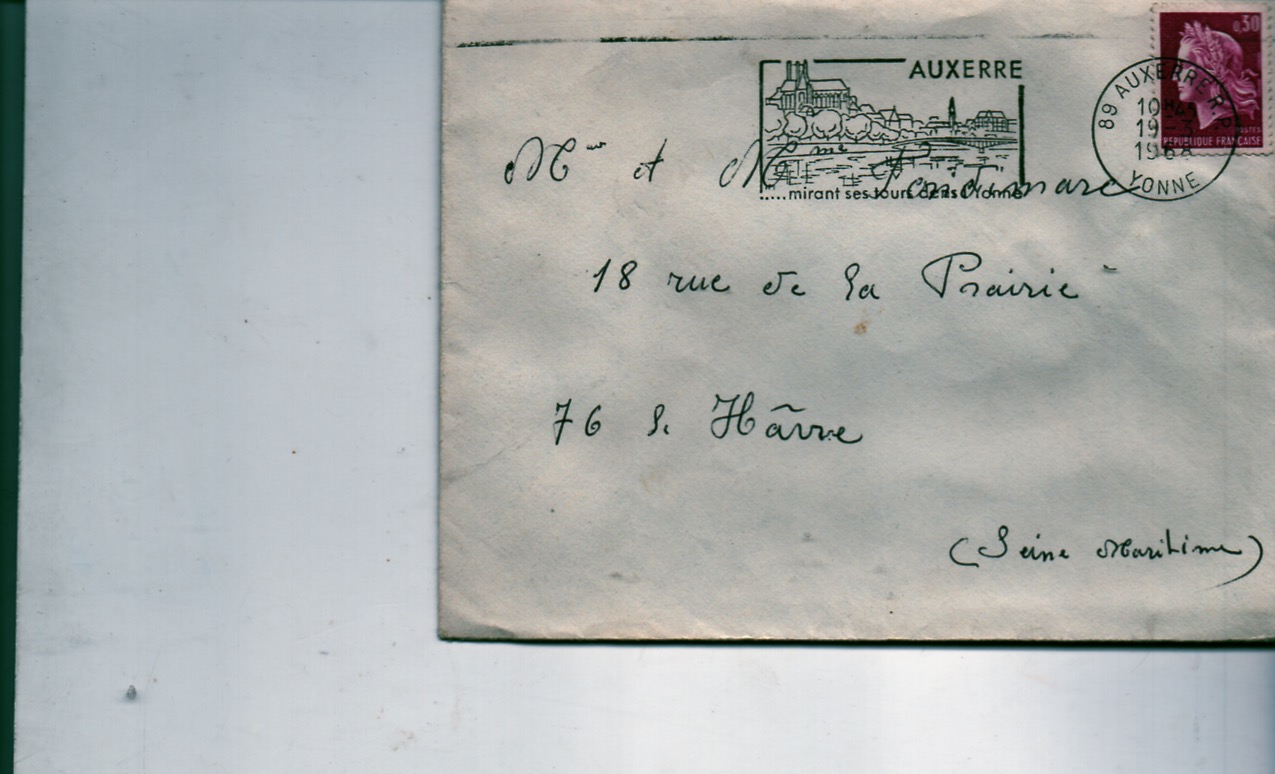 AUXERRE
.....mirant ses tours dans l'Yonne
0,30
POSTES
REPUBLIQUE FRANÇAISE
89 AUXERRE R.P.
10H45
19-3
1968
YONNE
Mr et Mme
18 rue de la Prairie
76 le Hâvre
(Seine Maritime)